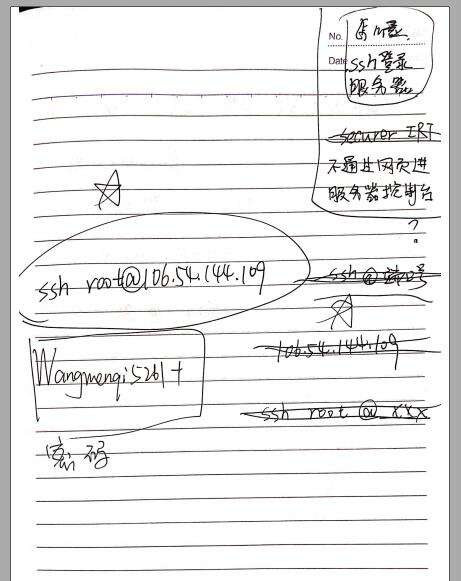 No.
Date ssh登录
服务器
securer CRT
不通过网页进
服务器控制台
?
ssh root@106.54.144.109
ssh @ 端口号
106.54.144.109
Wangmenqi5261+
ssh root @ xxx
密码